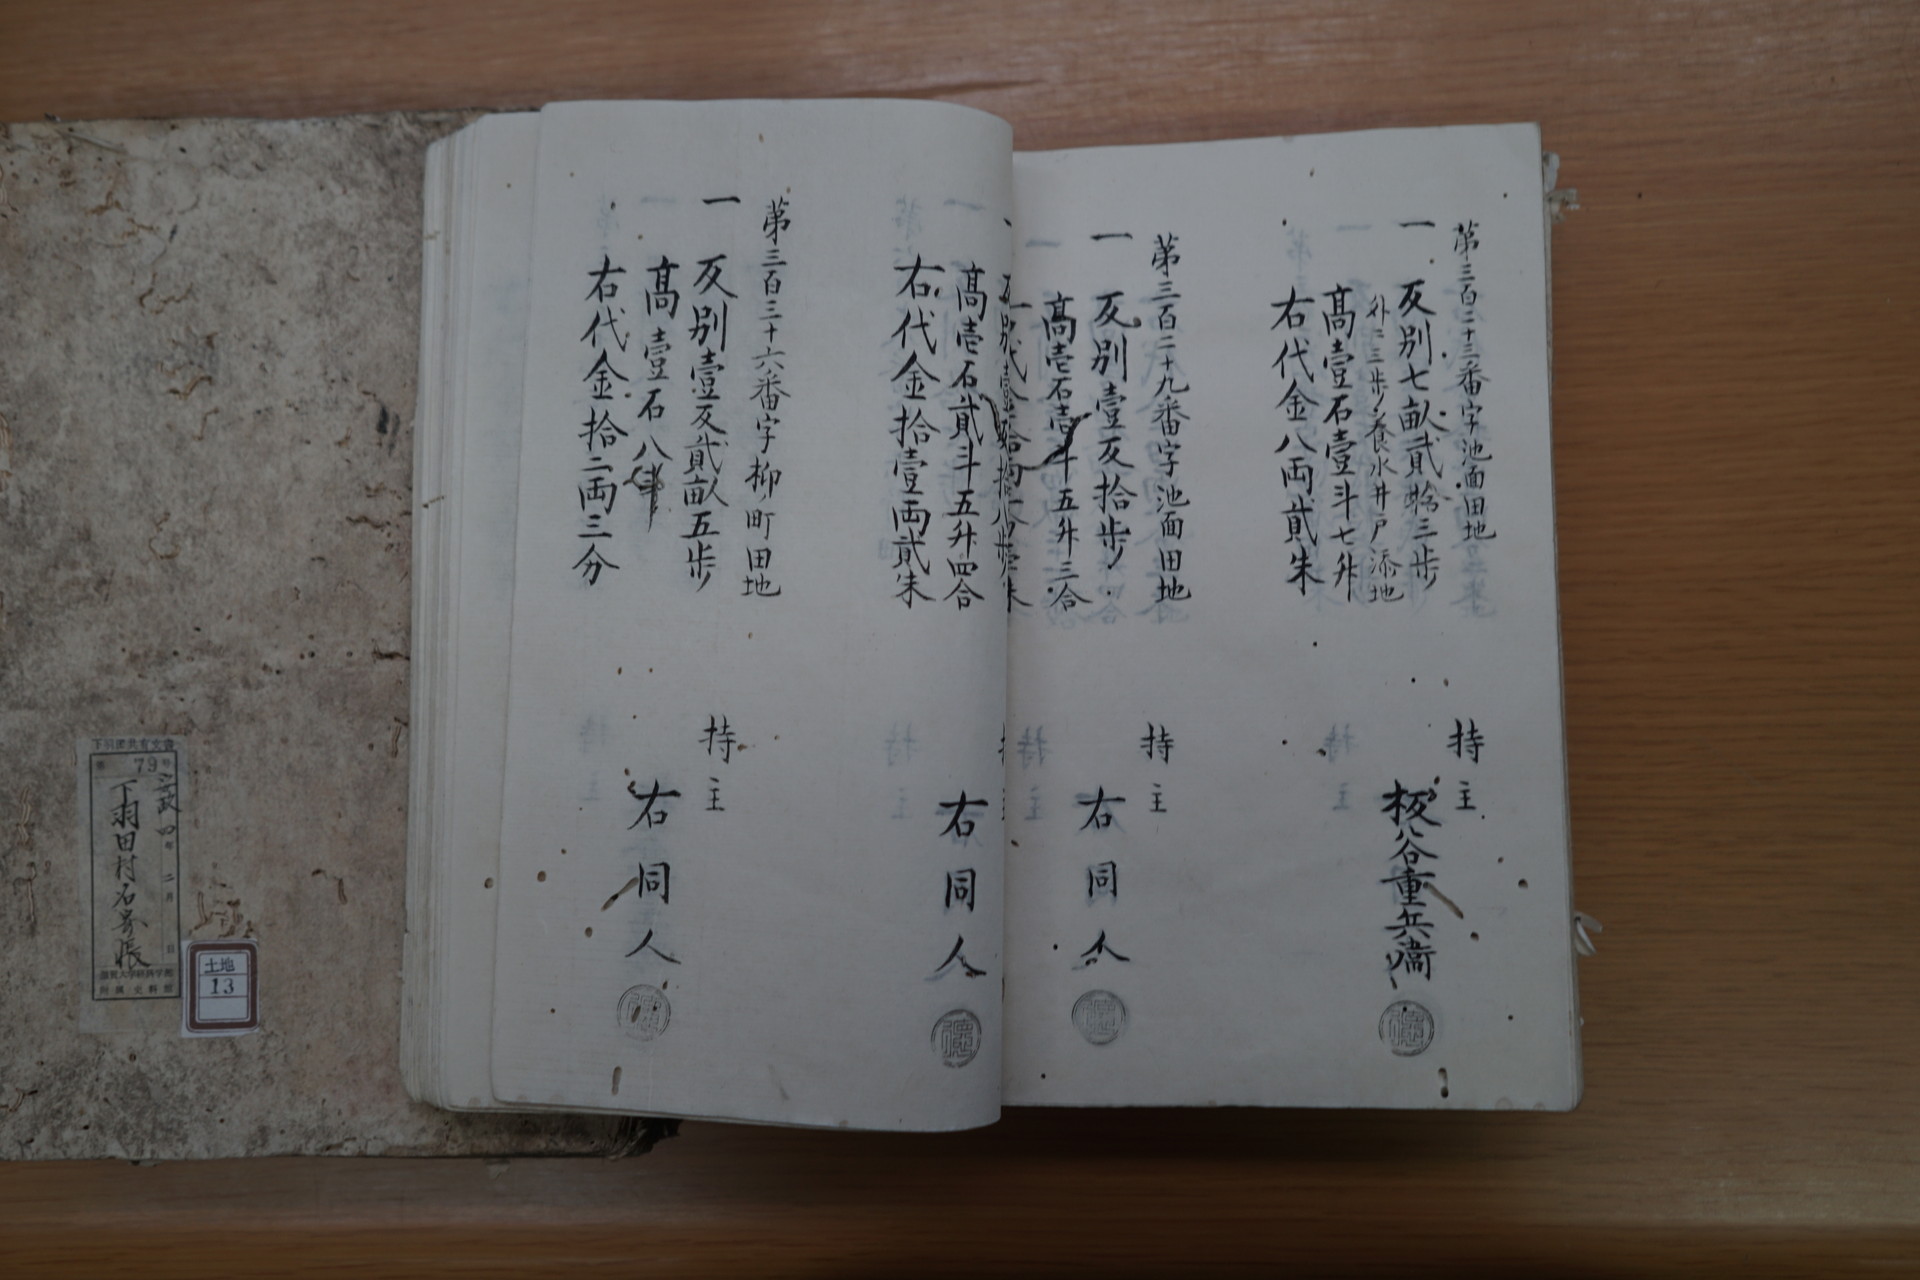 第三百二十三番字池面田地
一 反別七畝貳拾三歩
外ニ三歩養水井戸添地
高壹石壹斗七升
右代金八両貳朱
持主
板谷重兵衞
第三百二十九番字池面田地
一 反別壹反拾歩
高壱石壱斗五升三合
持主
右同人
高壱石貳斗五升四合
右代金拾壹両貳朱
右同人
第三百三十六番字柳町田地
一 反別壹反貳畝五歩
高壹石八斗
右代金拾二両三分
持主
右同人
下羽田共有文書
79号
安政四年二月 日
下羽田村名寄帳
滋賀大学経済学部
附属史料館
土地
13